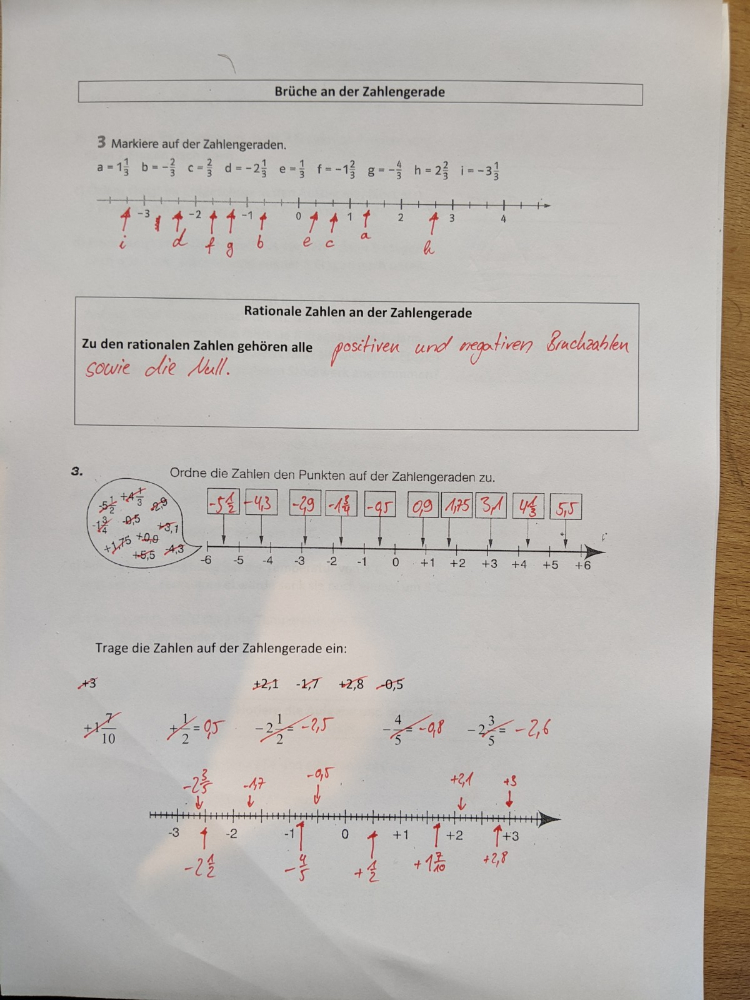 Brüche an der Zahlengerade
3 Markiere auf der Zahlengeraden.
a = 1 1/3 b = -2/3 c = 2/3 d = -2 1/3 e = 1/3 f = -1 2/3 g = -4/3 h = 2 2/3 i = -3 1/3
-3 -2 -1 0 1 2 3 4
i d f g b e c a h
Rationale Zahlen an der Zahlengerade
Zu den rationalen Zahlen gehören alle positiven und negativen Bruchzahlen
sowie die Null.
3. Ordne die Zahlen den Punkten auf der Zahlengeraden zu.
-5 1/2 +4 1/3 -2,9
-1 3/4 -0,5 +3,1
+1,75 +0,9
+5,5 -4,3
-5 1/2 -4,3 -2,9 -1 3/4 -0,5 0,9 1,75 3,1 4 1/3 5,5
-6 -5 -4 -3 -2 -1 0 +1 +2 +3 +4 +5 +6
Trage die Zahlen auf der Zahlengerade ein:
+3 +2,1 -1,7 +2,8 -0,5
+1 7/10 +1/2 = 0,5 -2 1/2 = -2,5 -4/5 = -0,8 -2 3/5 = -2,6
-2 3/5 -1,7 -0,5 +2,1 +3
-3 -2 -1 0 +1 +2 +3
-2 1/2 -4/5 +1/2 +1 7/10 +2,8